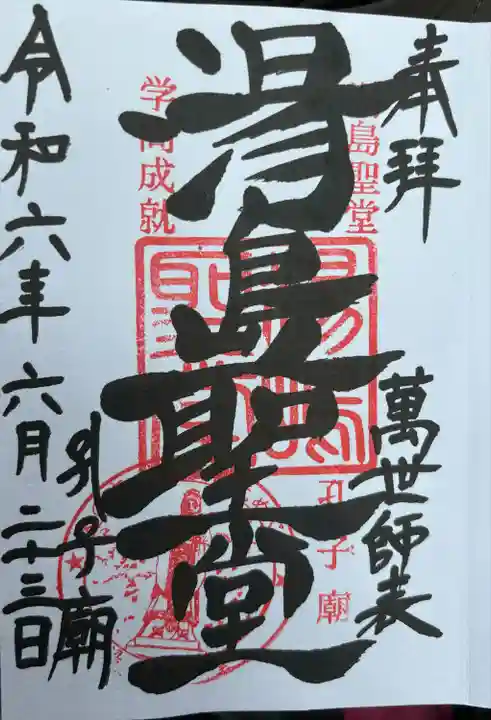 奉拝
萬世師表
島聖堂
孔子廟
湯島聖堂
学問成就
孔子廟
令和六年六月二十三日